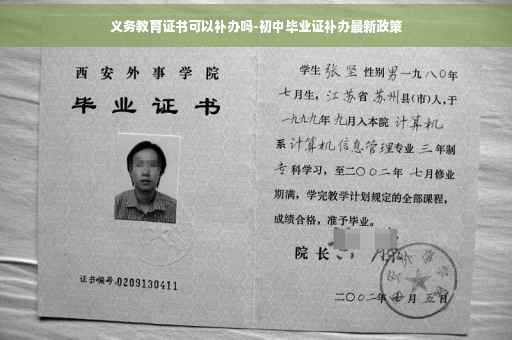 义务教育证书可以补办吗-初中毕业证补办最新政策
西安外事学院
毕业证书
证书编号:0209130411
学生 张坚 性别 男 一九八〇年
七月生，江苏省 苏州县(市)人，于
一九九九年 九月入本院 计算机
系 计算机信息管理专业 三 年制
专科学习，至二〇〇二年 七月修业
期满，学完教学计划规定的全部课程，
成绩合格，准予毕业。
院长
二〇〇二年 七 月 五 日